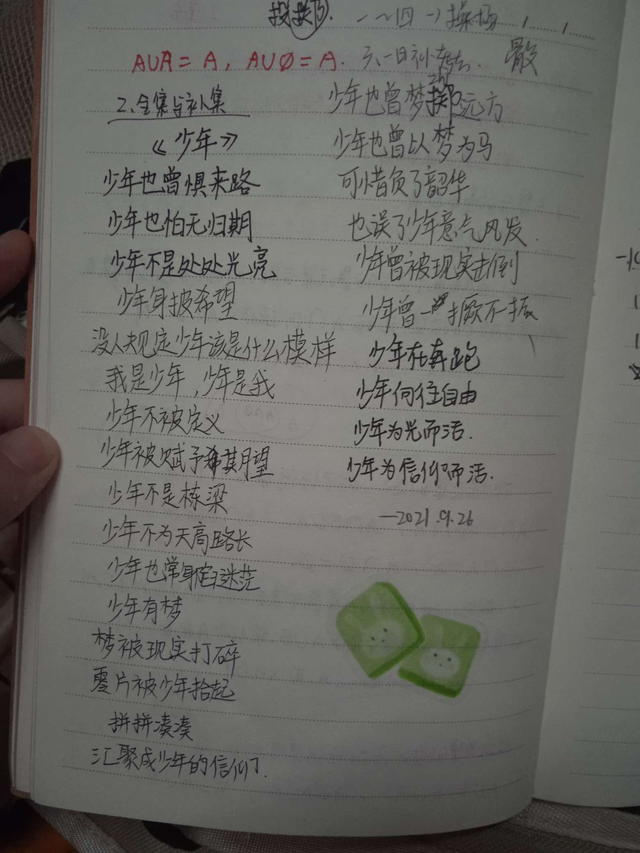 A∪A = A, A∪∅ = A.
2、全集与补集
《少年》
少年也曾惧来路
少年也怕无归期
少年不是处处光亮
少年身披希望
没人规定少年该是什么模样
我是少年，少年是我
少年不被定义
少年被赋予期望
少年不是栋梁
少年不为天高路长
少年也常身陷迷茫
少年有梦
梦被现实打碎
零片被少年拾起
拼拼凑凑
汇聚成少年的信仰
少年也曾梦 远方
少年也曾以梦为马
可惜负了韶华
也误了少年意气风发.
少年曾被现实击倒
少年曾一 打蹶不振
少年在奔跑
少年向往自由
少年为光而活.
少年为信仰而活.
—2021.9.26